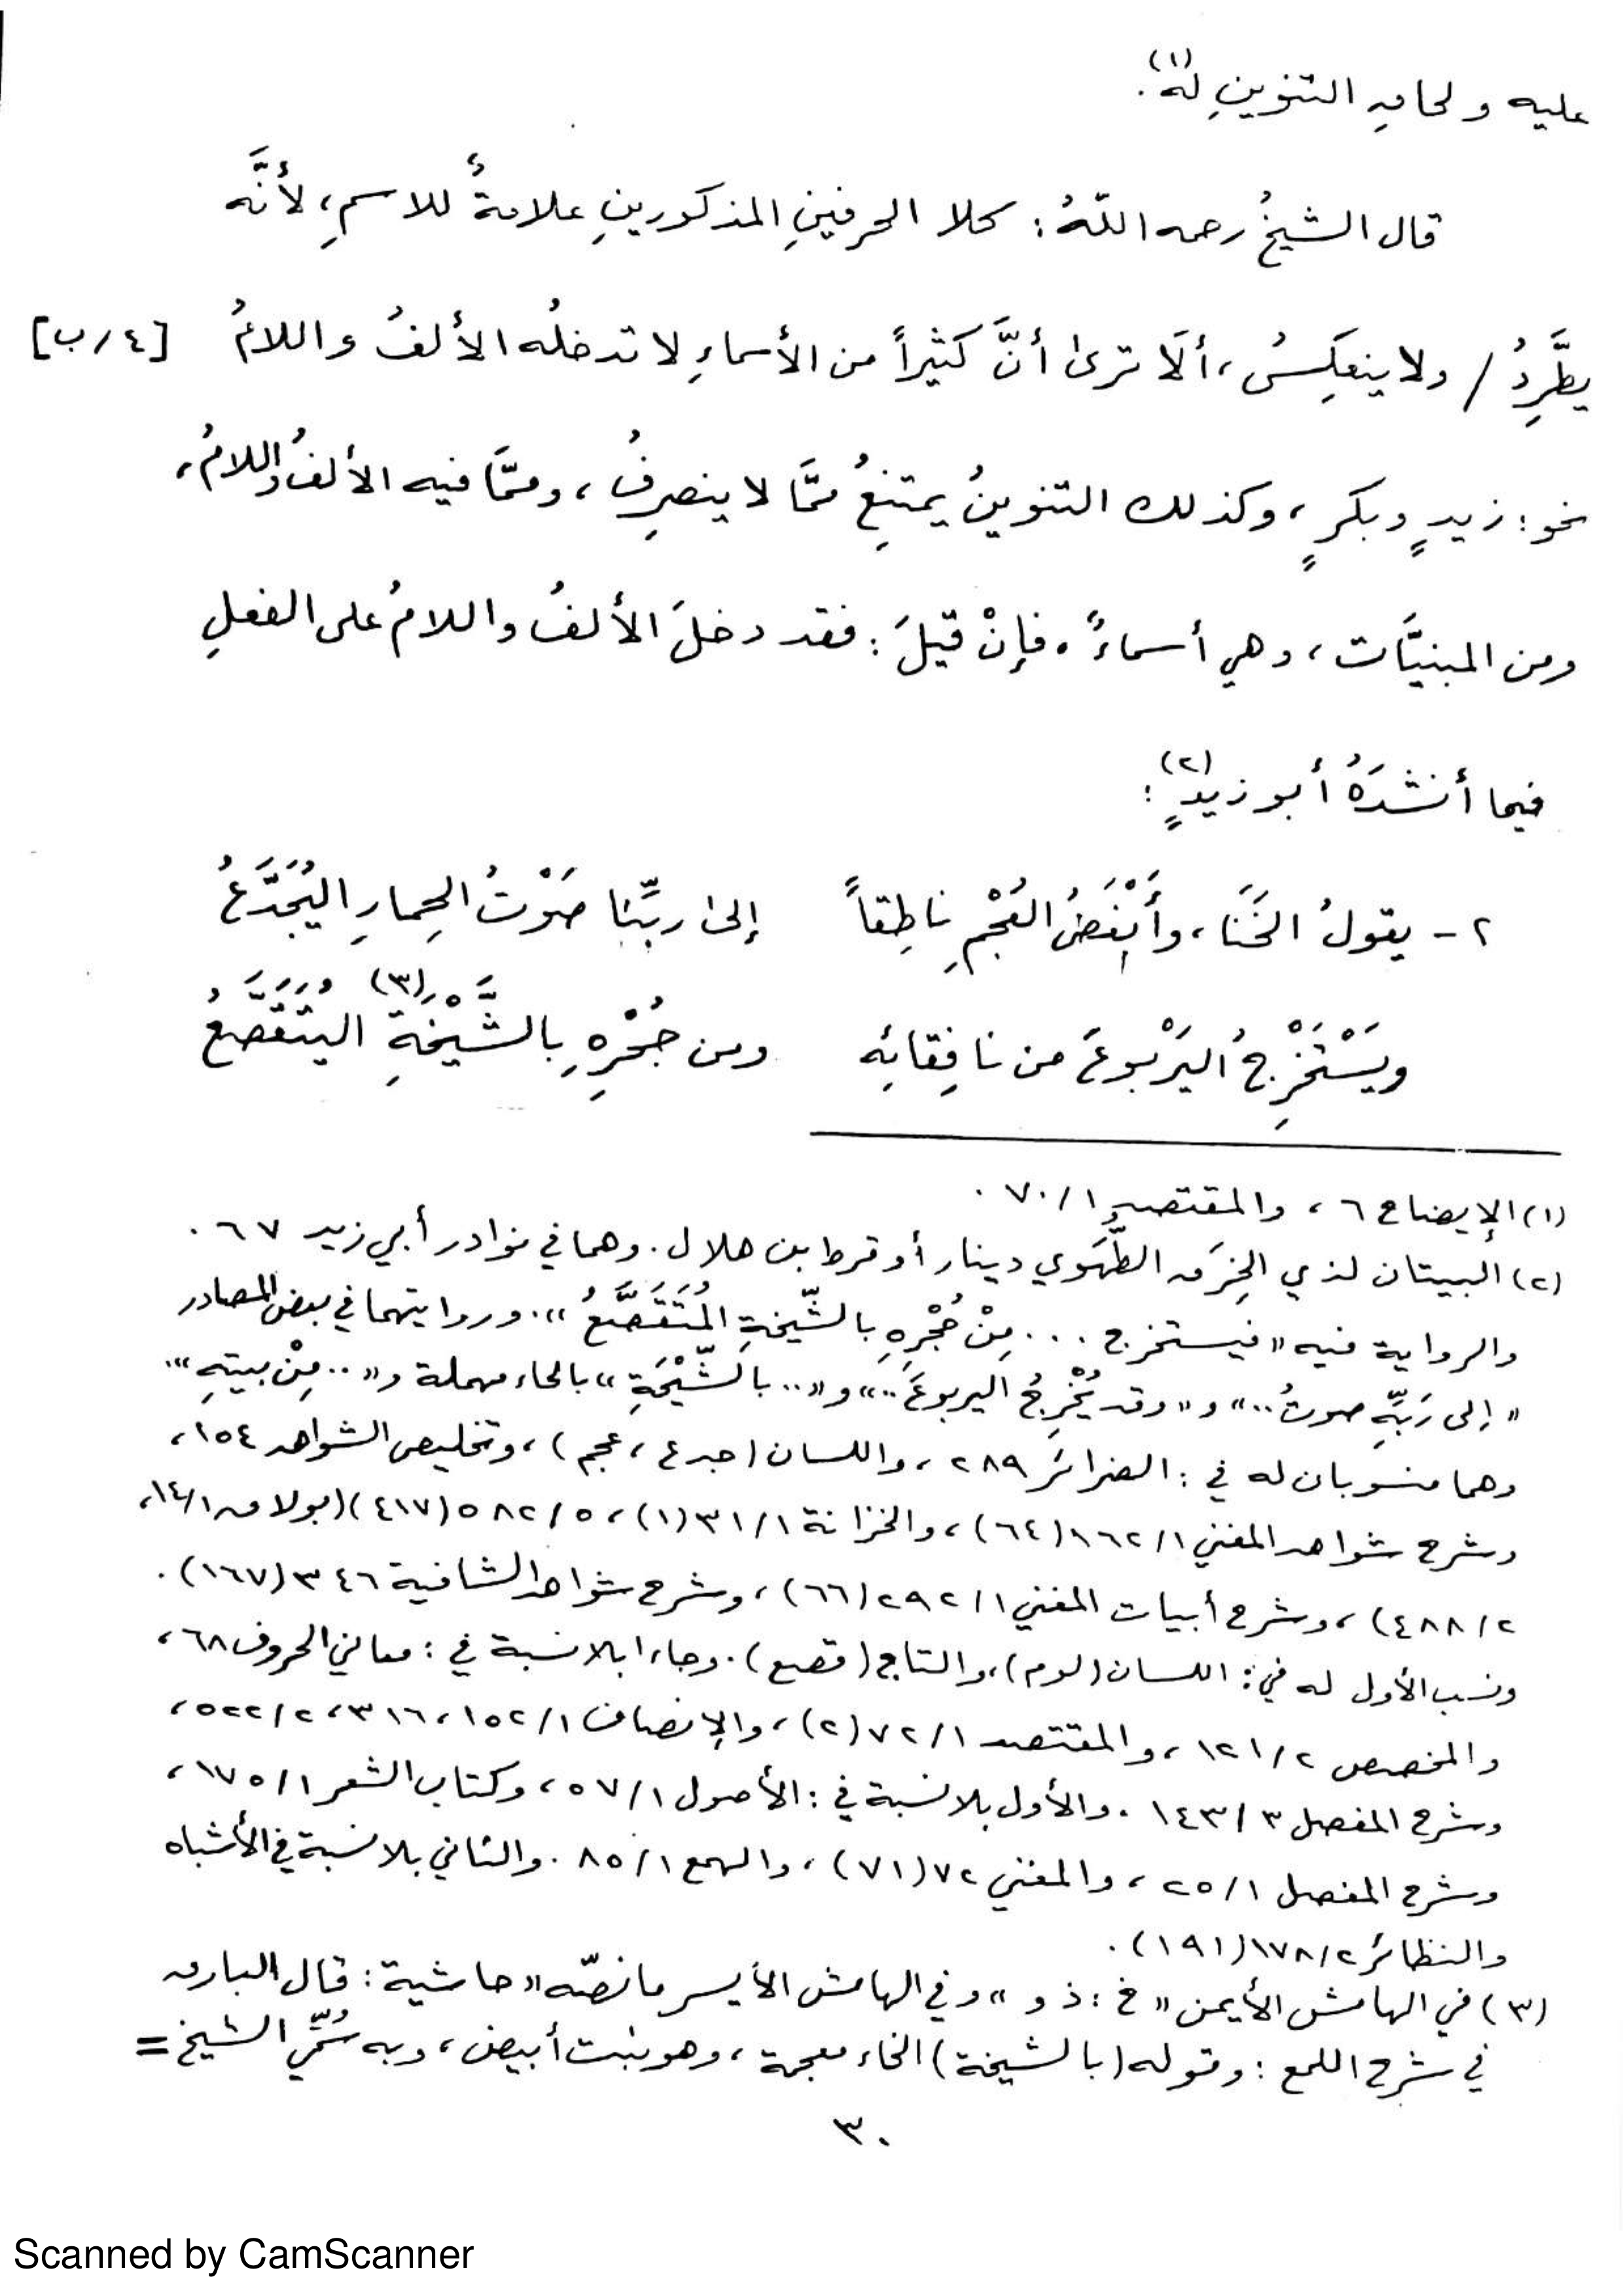 عليه ولحاقِ التنوينِ له(١).
قال الشيخُ رحمه اللّهُ: كلا الحرفينِ المذكورينِ علامةٌ للاسمِ، لأنَّه
يطَّرِدُ / ولا ينعكِسُ، ألَا ترىٰ أنَّ كثيراً من الأسماءِ لا تدخلُه الألفُ واللامُ [٤/ب]
نحو: زيدٍ وبكرٍ، وكذلك التنوينُ يمتنِعُ ممَّا لا ينصرِفُ، وممَّا فيه الألفُ واللامُ،
ومن المبنيَّات، وهي أسماءٌ. فإنْ قيلَ: فقد دخلَ الألفُ واللامُ على الفعلِ
فيما أنشدَهُ أبو زيدٍ(٢):
٢- يقولُ الخَنَا، وأَبْغَضُ العُجْمِ ناطِقاً إلىٰ ربِّنا صَوْتُ الحِمارِ اليُجَدَّعُ
ويَسْتَخْرِجُ اليَرْبوعَ من نافِقائِه ومن جُحْرِهِ بالشَّيْخَةِ(٣) اليُتَقَصَّعُ
(١) الإيضاح ٦، والمقتصد ٧٠/١.
(٢) البيتان لذي الخِرَق الطُّهَوي دينار أو قرط بن هلال. وهما في نوادر أبي زيد ٦٧.
والرواية فيه «فيستخرج ... مِنْ جُحْرِهِ بالشّيخةِ المُتَقَصَّعُ». وروايتهما في بعض المصادر
«إلى رَبِّهِ صوتُ..» و«وقد يُخْرِجُ اليربوعَ..» و«.. بالشِّيْحَةِ» بالحاء مهملة و«.. مِنْ بيتِهِ».
وهما منسوبان له في: الضرائر ٢٨٩، واللسان (جدع، عجم)، وتخليص الشواهد ١٥٤،
وشرح شواهد المغني ١٦٢/١(٦٤)، والخزانة ٣١/١(١)، ٥٨٢/٥(٤١٧)(بولاق ١٤/١،
٤٨٨/٢)، وشرح أبيات المغني ٢٩٢/١(٦٦)، وشرح شواهد الشافية ٣٤٦(١٦٧).
ونسب الأول له في: اللسان (لوم)، والتاج (قصع). وجاءا بلا نسبة في: معاني الحروف ٦٨،
والمخصص ١٢١/٢، والمقتصد ٧٢/١(٢)، والإنصاف ١٥٢/١، ٣١٦، ٥٢٢/٢،
وشرح المفصل ١٤٣/٣. والأول بلا نسبة في: الأصول ٥٧/١، وكتاب الشعر ١٧٥/١،
وشرح المفصل ٢٥/١، والمغني ٧٢(٧١)، والهمع ٨٥/١. والثاني بلا نسبة في الأشباه
والنظائر ١٧٨/٢(١٩١).
(٣) في الهامش الأيمن «خ: ذو» وفي الهامش الأيسر ما نصّه «حاشية: قال البارق
في شرح اللمع: وقوله (بالشيخة) الخاء معجمة، وهو نبت أبيض، وبه سُمِّي الشيخ =
٣٠
Scanned by CamScanner